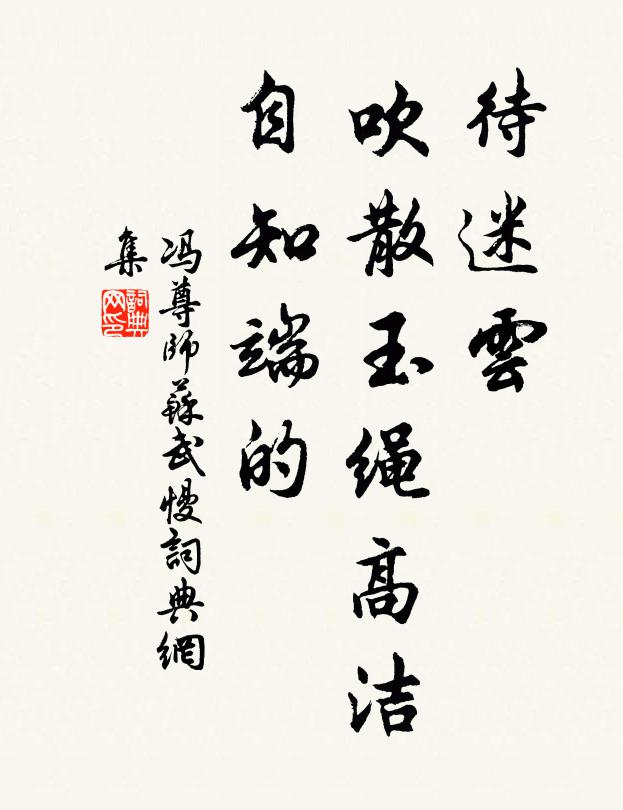 待迷雲
吹散玉绳高洁
自知端的
冯尊師蘇武慢詞典網
集
詞典
网印